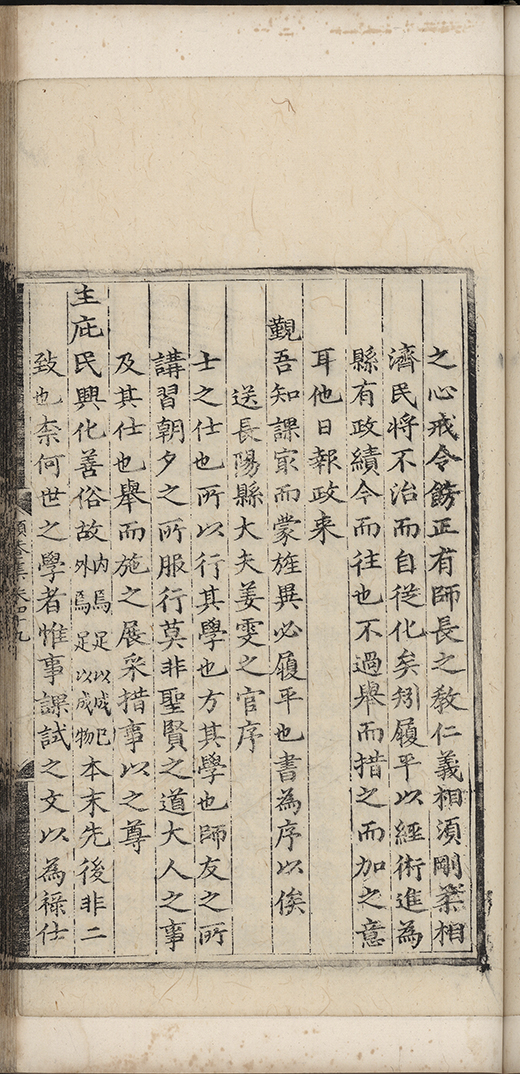 之心戒令飭正有師長之敎仁義相須剛柔相
濟民將不治而自從化矣矧履平以經術進爲
縣有政績今而往也不過舉而措之而加之意
耳他日報政来
覲吾知課冣而蒙旌異必履平也書爲序以俟
送長陽縣大夫姜雯之官序
士之仕也所以行其學也方其學也師友之所
講習朝夕之所服行莫非聖賢之道大人之事
及其仕也舉而施之展采措事以之尊
主庇民興化善俗故內焉足以成已外焉足以成物本末先後非二
致也柰何世之學者惟事課試之文以為祿仕
卷四十九